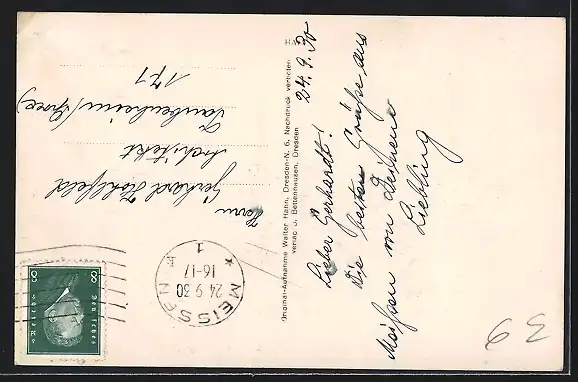 24.9.30
Lieber Gerhardt!
Die besten Grüße aus
Meißen von Deinem
Liebling
Original-Aufnahme Walter Hahn, Dresden-N. 6, Nachdruck verboten
Verlag u. Bettenhausen, Dresden
Herrn
Gerhard Kohlfeld
Architekt
Taubenheim (Spree)
171
MEISSEN
24.9.30
16-17
* 1 *
Deutsches
Reich
8 8
39